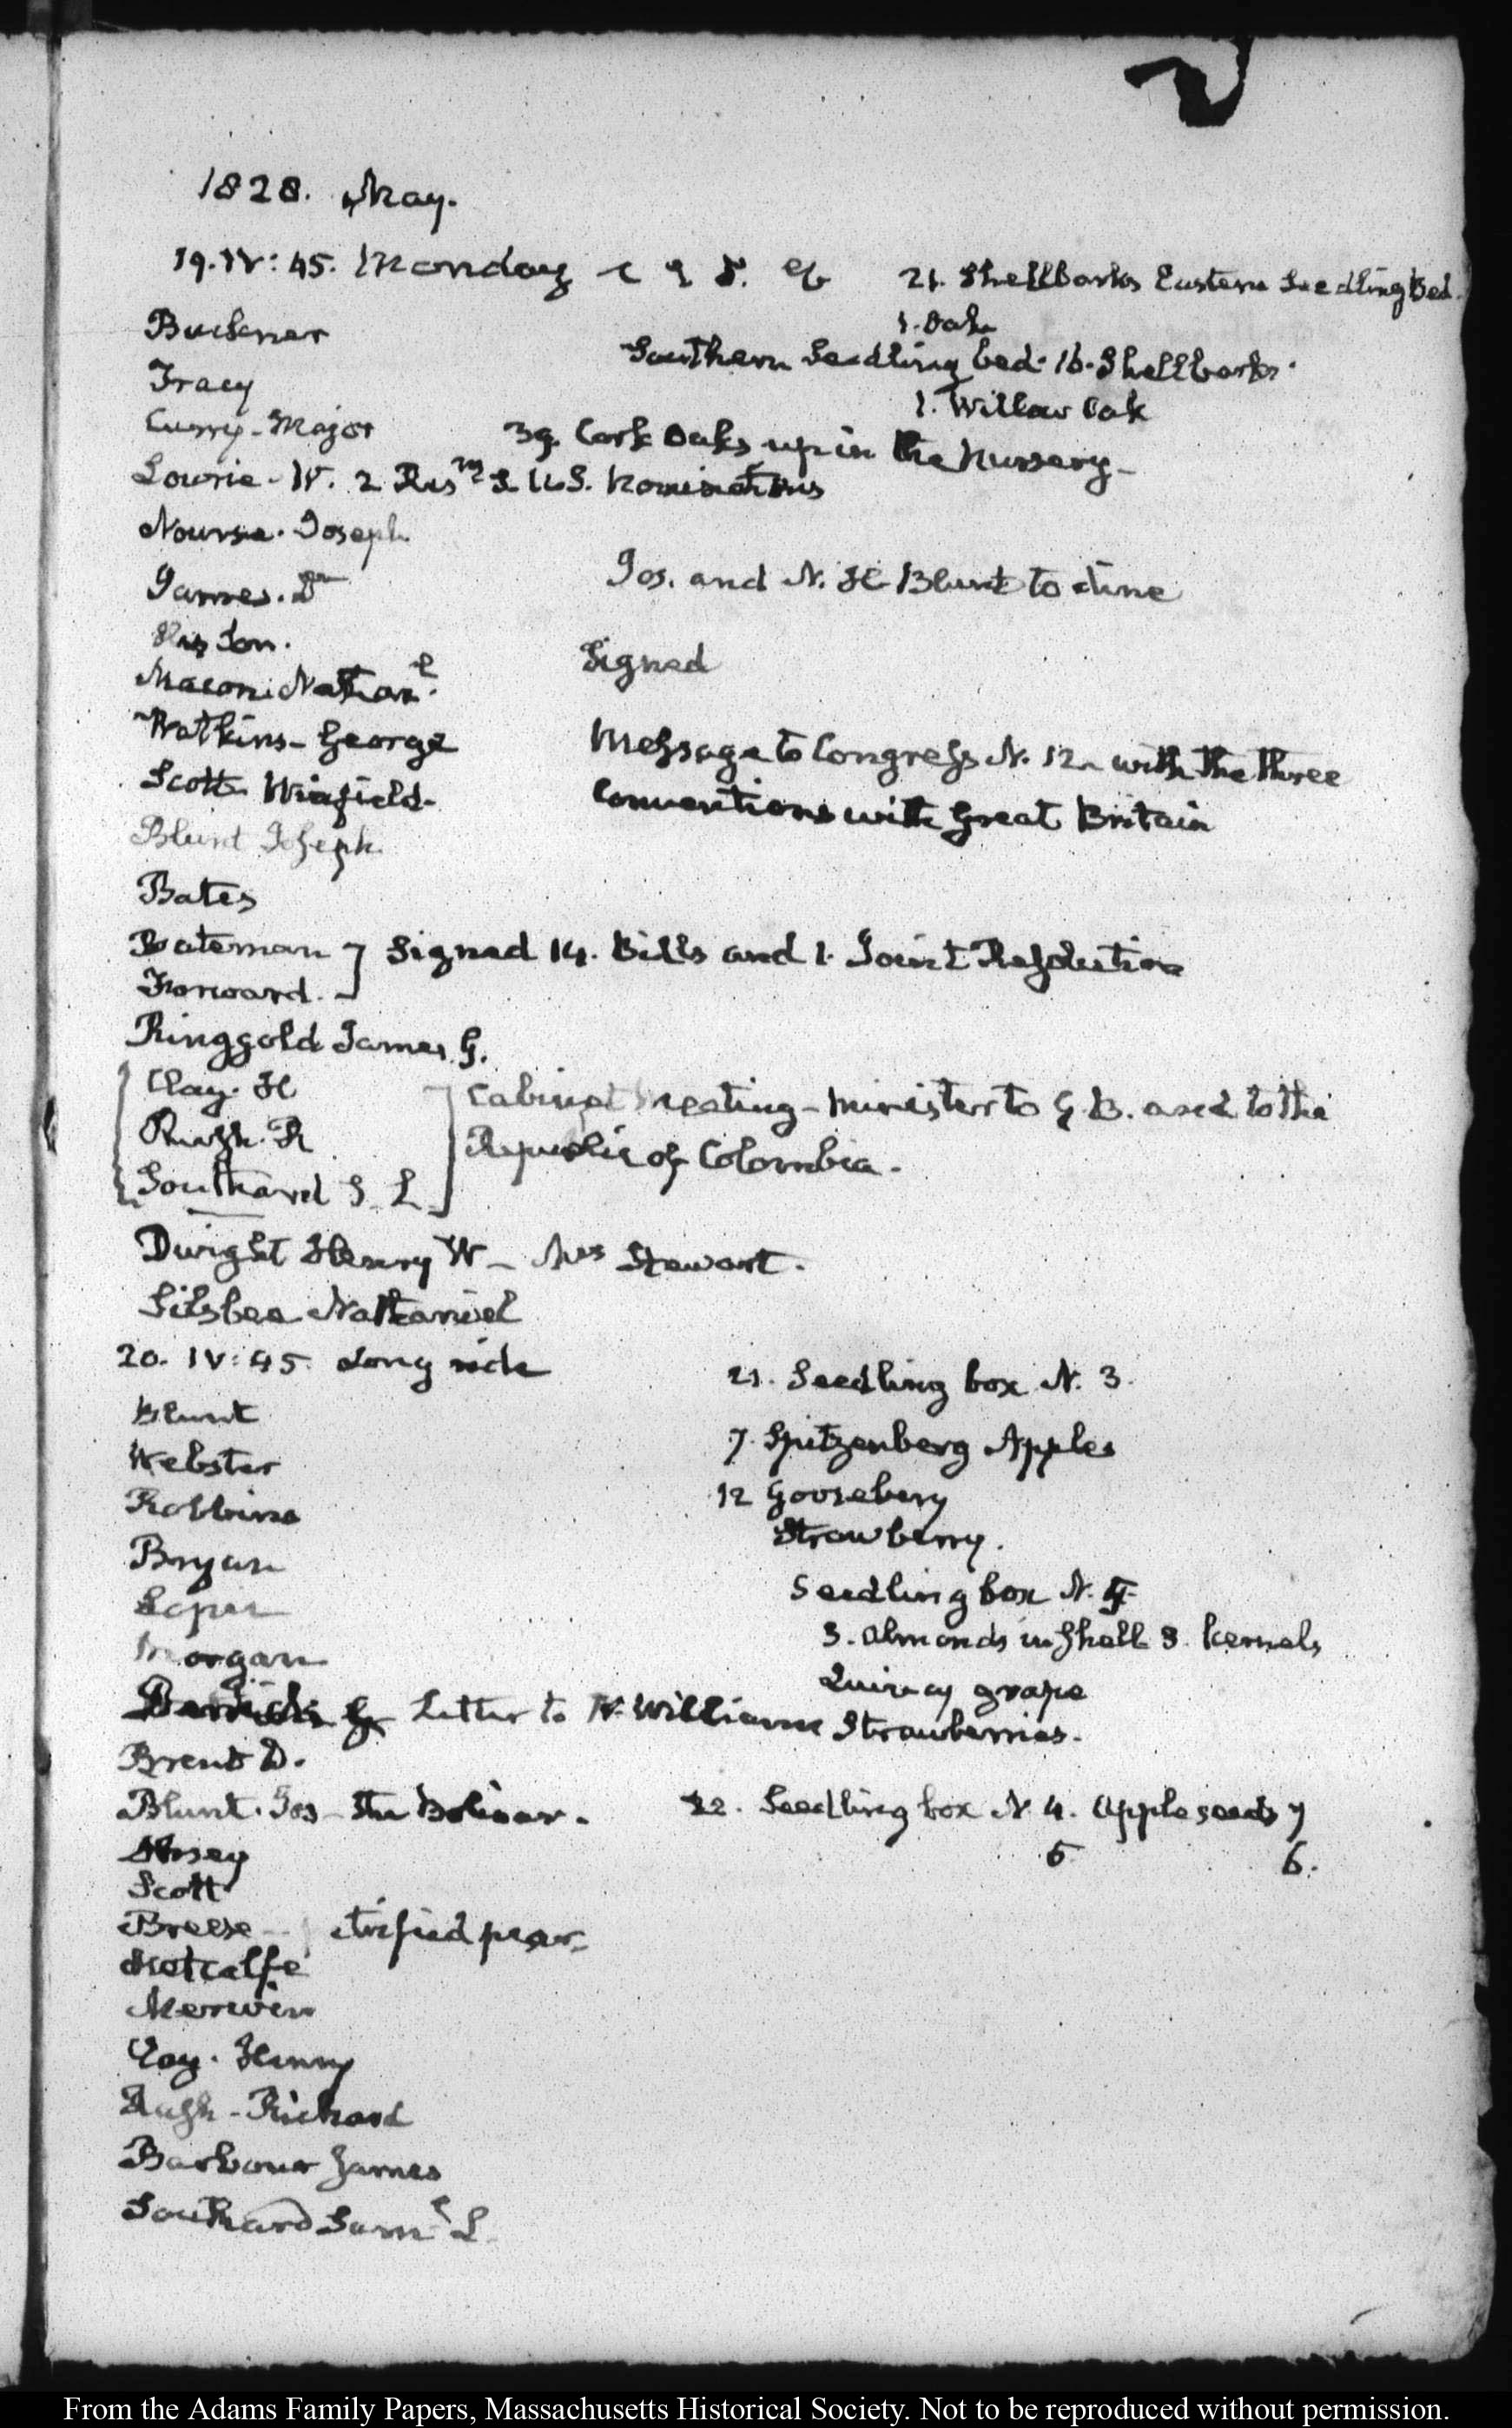 1828. May.
19. IV: 45. Monday
21. Shellbarks Eastern Seedling Bed.
1. Oak
Buckner
Southern Seedling bed. 16. Shellbarks.
Tracy
1. Willow Oak
Curry. Major
39. Cork Oaks up in the Nursery—
Lowrie. W. 2 Resns S. U.S. Nominations
Nourse. Joseph
James. Dr
Jos. and N. H Blunt to dine
His Son.
Signed
Macon. Nathanl.
Watkins— George
Message to Congress N. 12. with the three
Scott Winfield.
Conventions with Great Britain
Blunt Joseph
Bates
Bateman ] Signed 14. Bills and 1. Joint Resolution
Forward.
Ringgold James G.
Clay. H
Cabinet Meeting— Minister to G. B. and to the
Rush. R
Republic of Colombia.
Southard S. L
Dwight Henry W— Mrs Stewart.
Silsbee Nathaniel
20. IV: 45. Long ride
21. Seedling box N. 3.
Blunt
7. Spitzenberg Apples
Webster
12 Gooseberry
Robbins
Strawberry.
Bryan
Seedling box N. 4
3. Almonds in Shell 3. kernels
Morgan
Quincy grape
Letter to W. Williams
Strawberries.
Brent D.
Blunt. Jos— The Bolivar.
22. Seedling box N 4. Apple seeds 7
5 6.
Scott
Breese—
Metcalfe
Merwin
Clay. Henry
Rush— Richard
Barbour James
Southard Saml L.
From the Adams Family Papers, Massachusetts Historical Society. Not to be reproduced without permission.